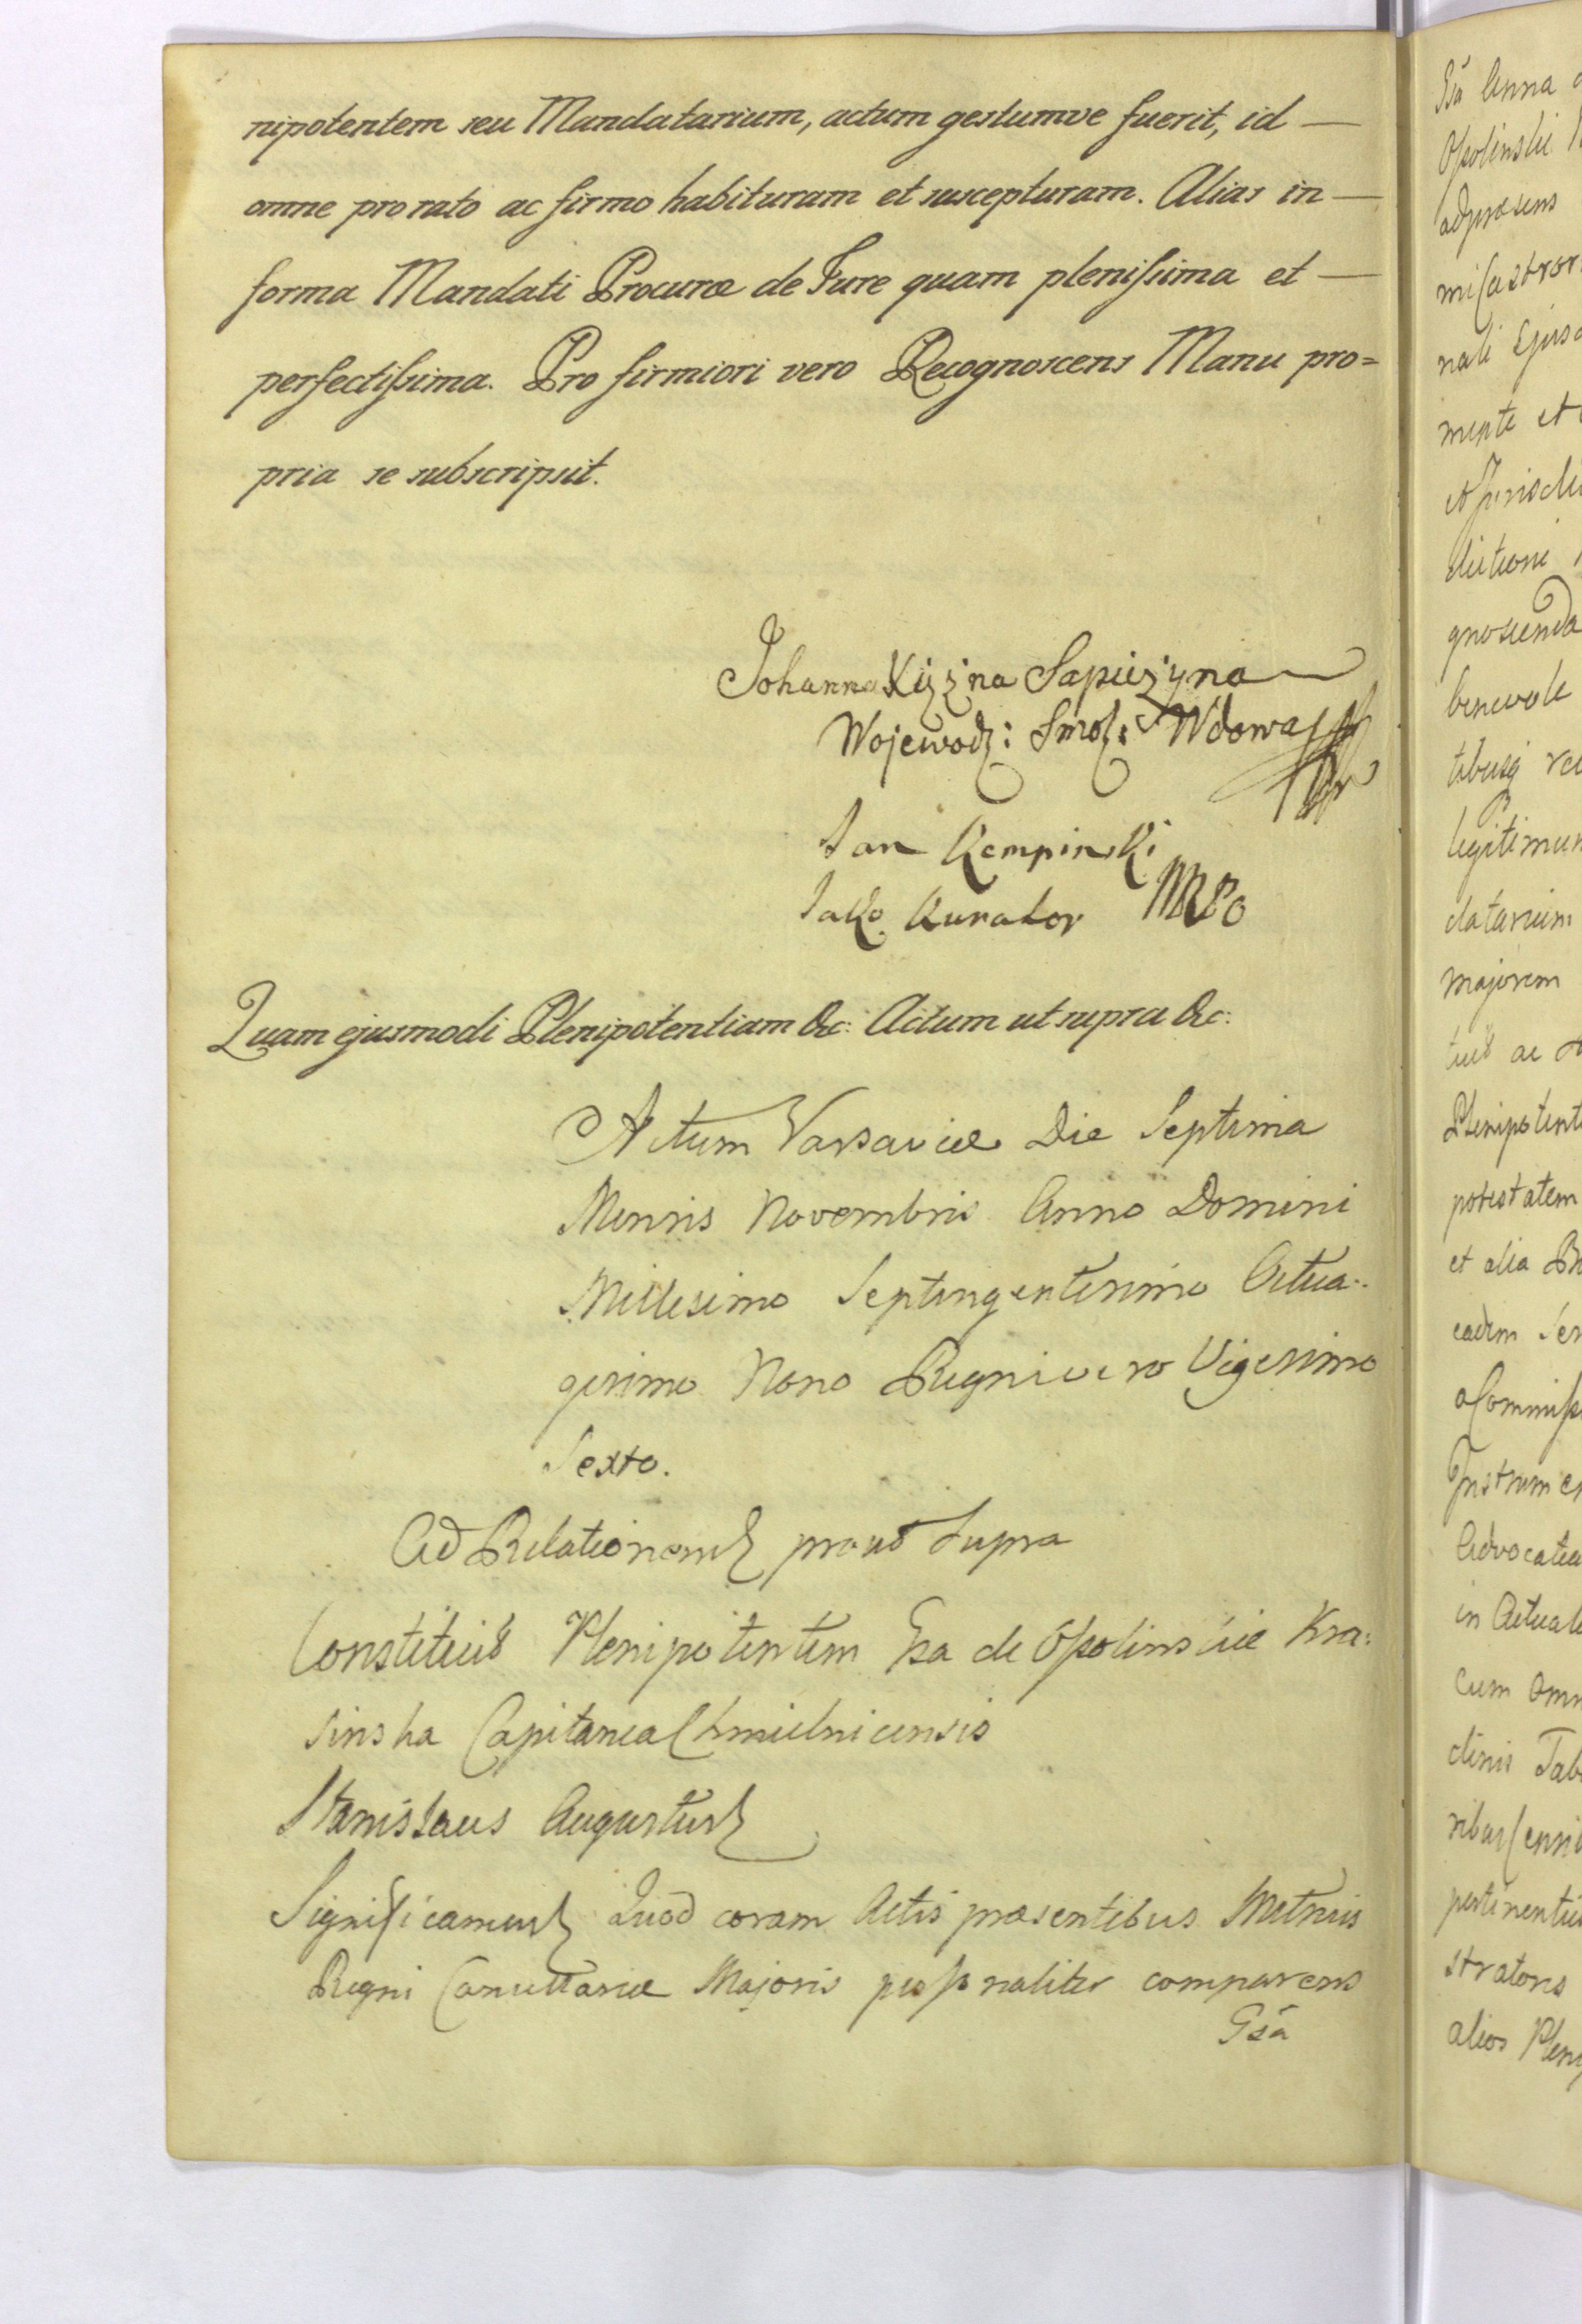 nipotentem seu Mandatarium, actum gestumve fuerit, id —
omne pro rato ac firmo habituram et suscepturam. Alias in —
forma Mandati Procuræ de Jure quam plenissima et —
perfectissima. Pro firmiori vero Recognoscens Manu pro=
pria se subscripsit.
Johanna Xiężna Sapieżyna
Wojewodz: Smol: Wdowa
Jan Kempinski
Jako Kurator MPo
Quam ejusmodi Plenipotentiam &c: Actum ut supra &c:
Actum Varsaviæ Die Septima
Mensis Novembris Anno Domini
Millesimo Septingentesimo Octua=
gesimo Nono Regni vero Vigesimo
Sexto.
Ad Relationem prout Supra
Constituit Plenipotentem Gsa de Ossolinskie Kra:
sinska Capitanea Chmielnicensis
Stanislaus Augustus
Significamus Quod coram Actis præsentibus Metrices
Regni Cancellariæ Majoris personaliter comparens
Gsa
Gsa Anna
Ossolinskie
adpræsens
nali Ejusd
mente et
dictioni
gnoscenda
benevole
legitimum
datarium
majorem
tuit ac
Plenipotent
potestatem
et alia
eadem Ser
Commiss
Instrumen
Advocatia
in Actuali
cum Omn
dinis Tab
pertinentiis
stratoris
alios Pleni